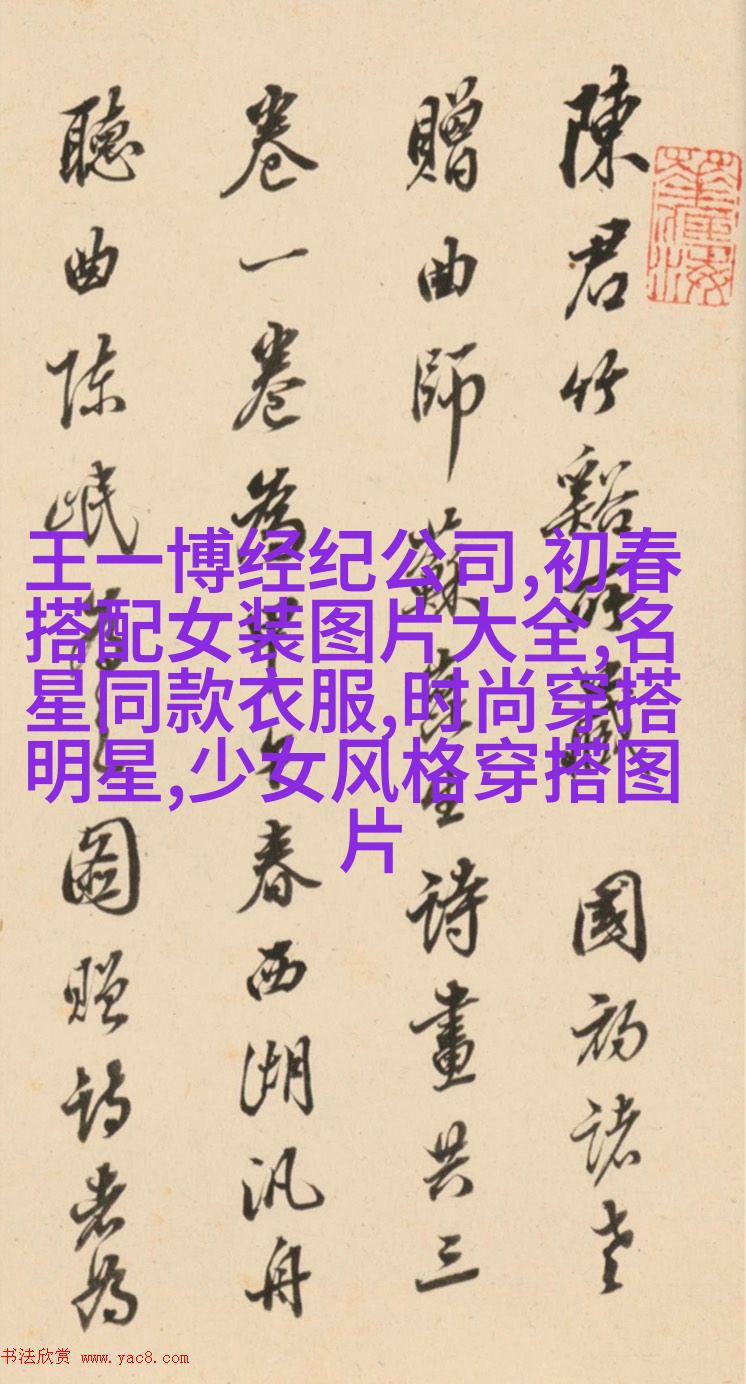 陳君竹谿所藏 國初諸老
贈曲師蘇崑生詩畫共三
卷一卷為午春西湖汎舟
聽曲陳岷圖贈詩者為
王一博经纪公司,初春
搭配女装图片大全,名
星同款衣服,时尚穿搭
明星,少女风格穿搭图
片
书法欣赏 www.yac8.com